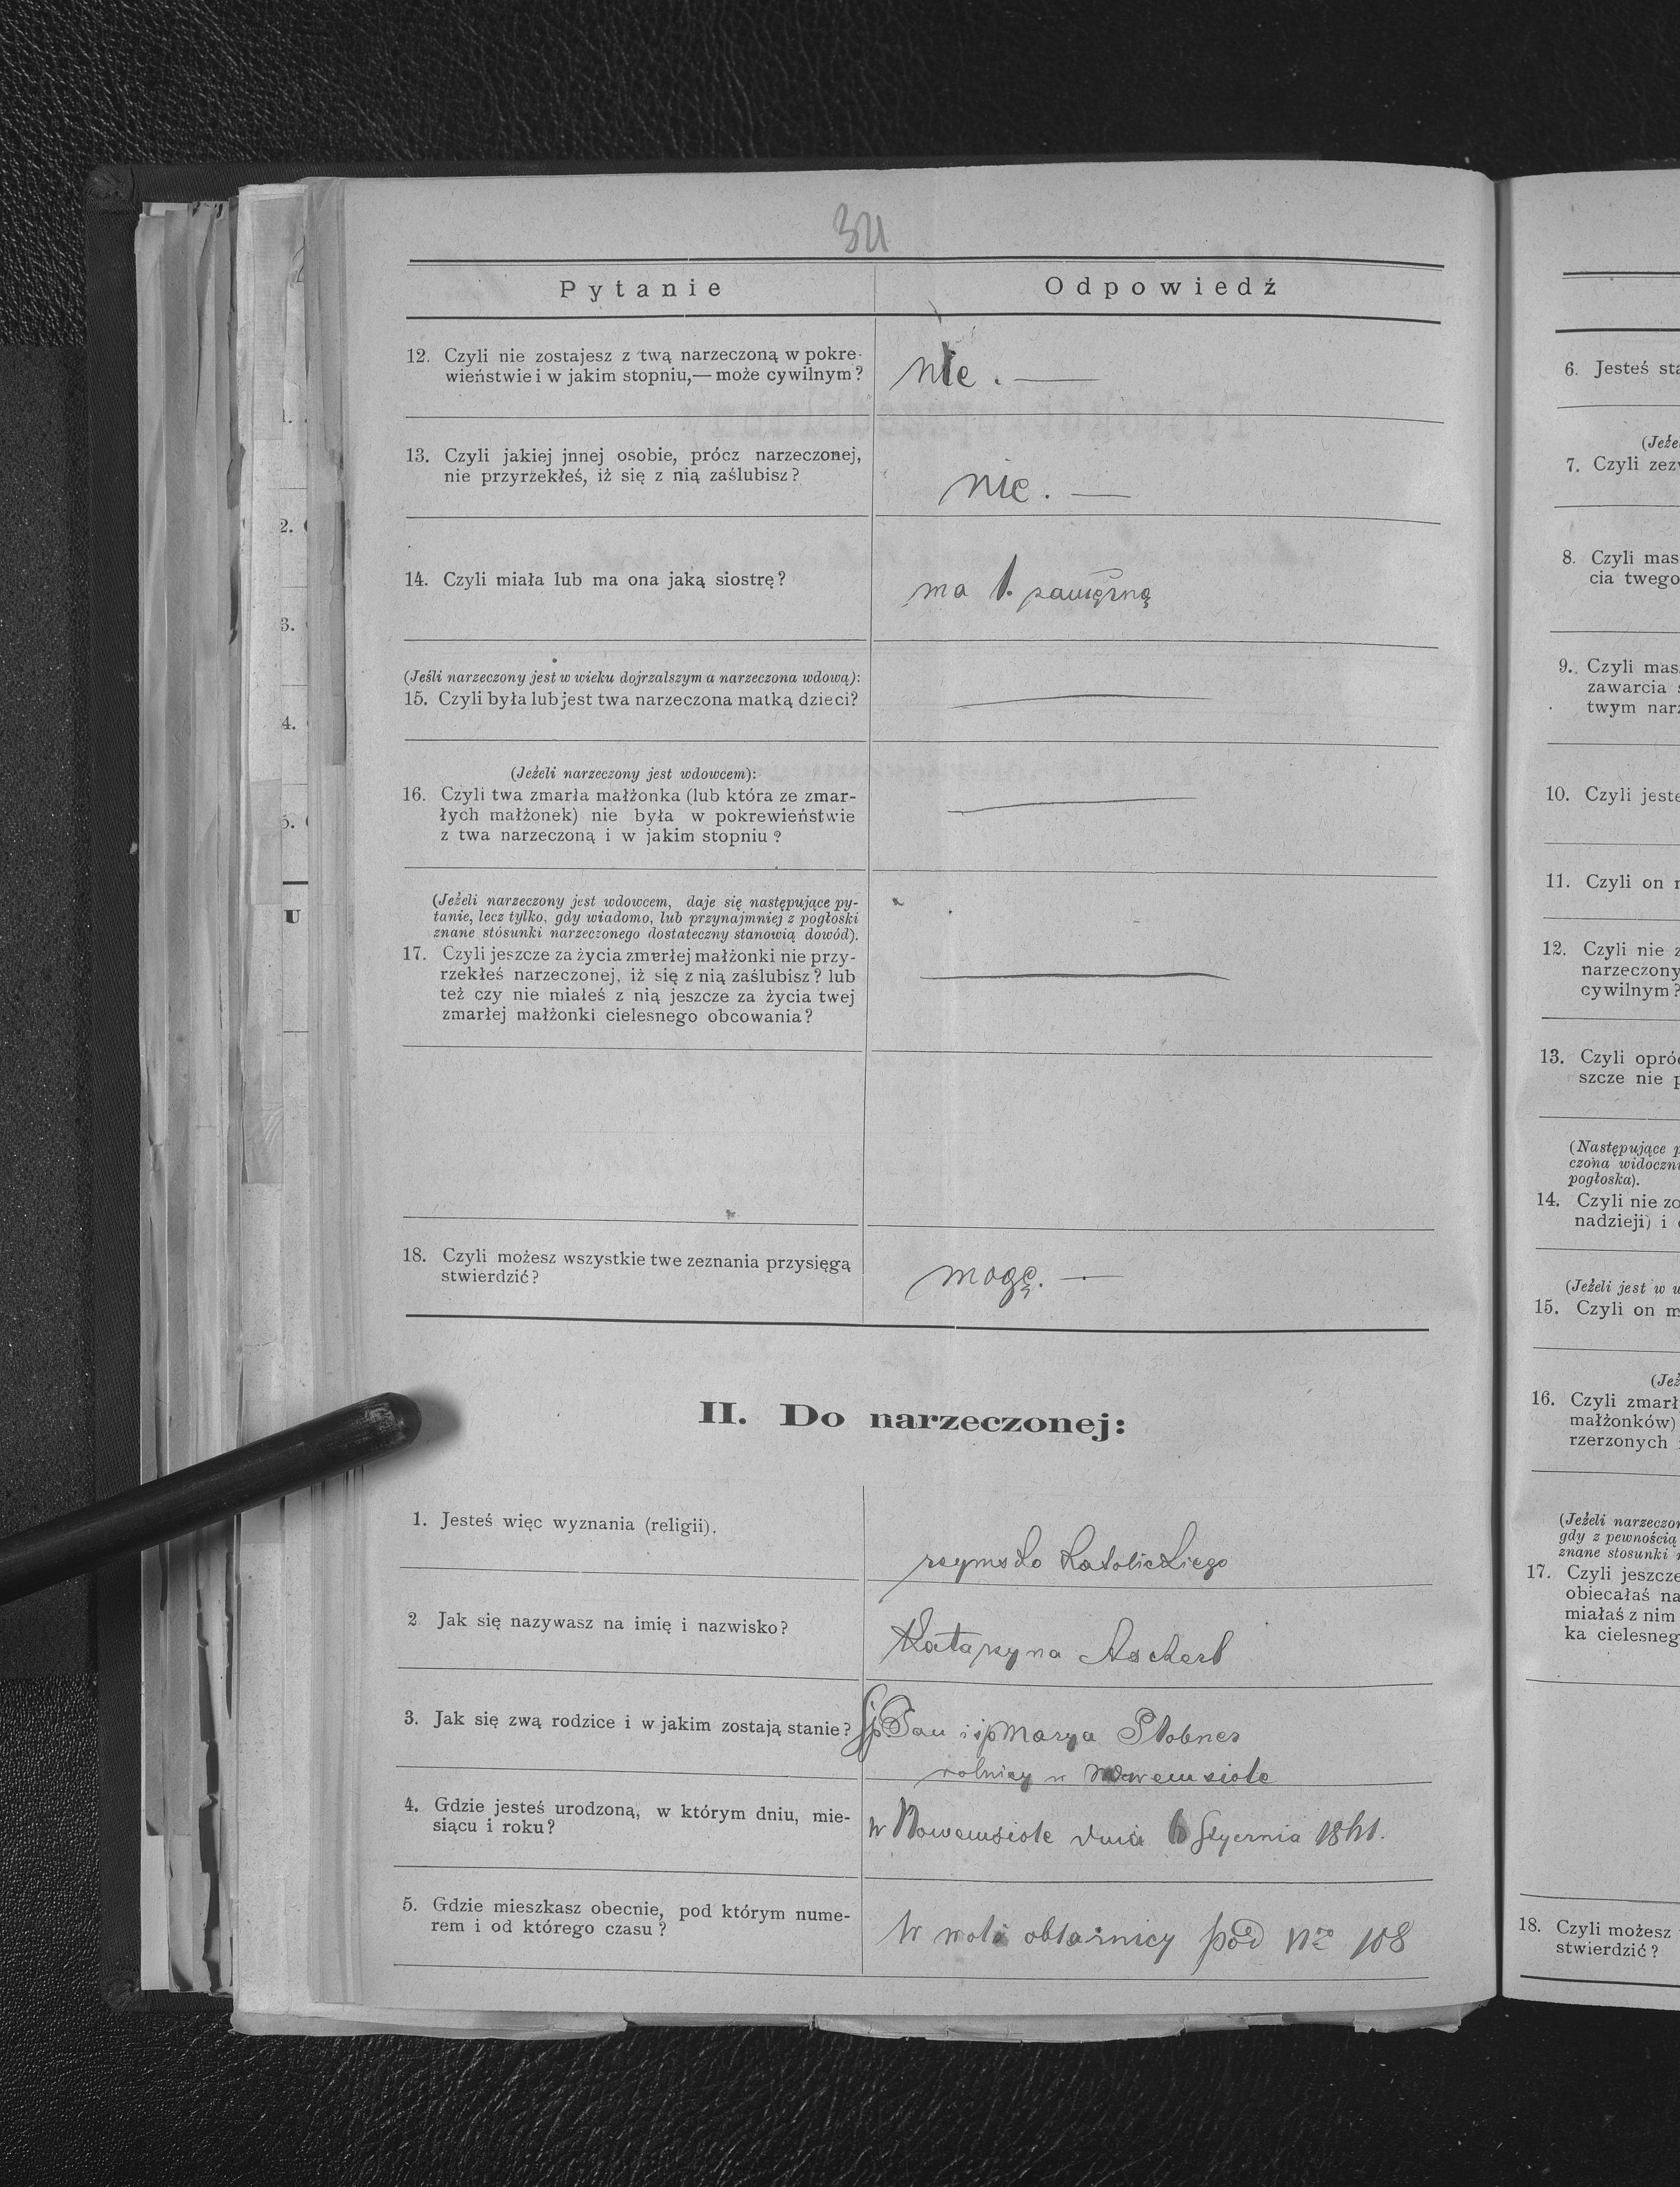 321
Pytanie
Odpowiedź
12. Czyli nie zostajesz z twą narzeczoną w pokre-
wieństwie i w jakim stopniu,— może cywilnym?
nie. —
13. Czyli jakiej jnnej osobie, prócz narzeczonej,
nie przyrzekłeś, iż się z nią zaślubisz?
nie. —
14. Czyli miała lub ma ona jaką siostrę?
ma 1. zamężną
(Jeśli narzeczony jest w wieku dojrzalszym a narzeczona wdową):
15. Czyli była lub jest twa narzeczona matką dzieci?
(Jeżeli narzeczony jest wdowcem):
16. Czyli twa zmarła małżonka (lub która ze zmar-
łych małżonek) nie była w pokrewieństwie
z twa narzeczoną i w jakim stopniu?
(Jeżeli narzeczony jest wdowcem, daje się następujące py-
tanie, lecz tylko, gdy wiadomo, lub przynajmniej z pogłoski
znane stósunki narzeczonego dostateczny stanowią dowód).
17. Czyli jeszcze za życia zmarłej małżonki nie przy-
rzekłeś narzeczonej, iż się z nią zaślubisz? lub
też czy nie miałeś z nią jeszcze za życia twej
zmarłej małżonki cielesnego obcowania?
18. Czyli możesz wszystkie twe zeznania przysięgą
stwierdzić?
mogę. —
II. Do narzeczonej:
1. Jesteś więc wyznania (religii).
rzymsko Katolickiego
2 Jak się nazywasz na imię i nazwisko?
Katarzyna
3. Jak się zwą rodzice i w jakim zostają stanie?
śp Jan i śp Marya
rolnicy w Nowemsiole
4. Gdzie jesteś urodzoną, w którym dniu, mie-
siącu i roku?
w Nowemsiole dnia Stycznia
5. Gdzie mieszkasz obecnie, pod którym nume-
rem i od którego czasu?
w woli obłaźnicy pod Nro 108
6. Jesteś sta
(Jeże
7. Czyli zezw
8. Czyli mas
cia twego
9. Czyli mas
zawarcia
twym narz
10. Czyli jeste
11. Czyli on
12. Czyli nie z
narzeczony
cywilnym?
13. Czyli opró
szcze nie p
(Następujące p
czona widoczn
pogłoska).
14. Czyli nie zo
nadzieji) i
(Jeżeli jest w w
15. Czyli on m
(Jeż
16. Czyli zmarł
małżonków)
rzerzonych
(Jeżeli narzeczon
gdy z pewnością
znane stosunki
17. Czyli jeszcze
obiecałaś na
miałaś z nim
ka cielesneg
18. Czyli możesz
stwierdzić?